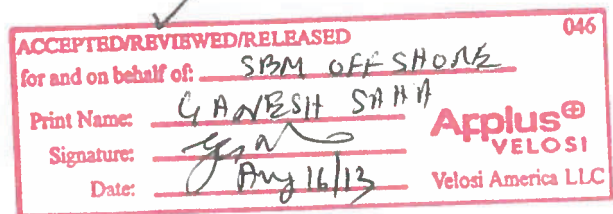 ACCEPTED/REVIEWED/RELEASED 046
for and on behalf of: SBM OFFSHORE
Print Name: GANESH SAHA
Applus⊕
VELOSI
Signature:
Date: Aug 16/13
Velosi America LLC